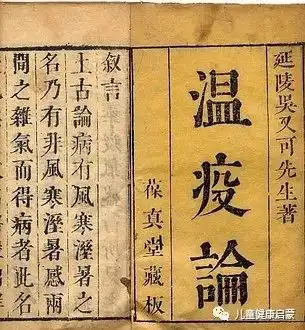 延陵吳又可先生著
温疫論
葆真堂藏板
叙言
上古論病有風寒溼暑之
名乃有非風寒溼暑感兩
間之雜氣而得病者此名
儿童健康启蒙